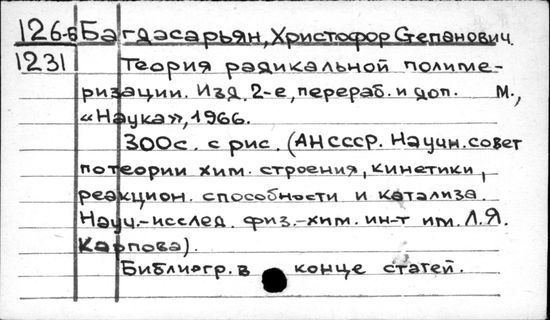 126-6 Багдасарьян, Христофор Степанович.
1231 Теория радикальной полиме-
ризации. Изд. 2-е, перераб. и доп. М.,
«Наука», 1966.
300с. с рис. (АН СССР. Научн. совет
по теории хим. строения, кинетики,
реакцион. способности и катализа.
Науч.-исслед. физ.-хим. ин-т им. Л.Я.
Карпова).
Библиогр. в конце статей.